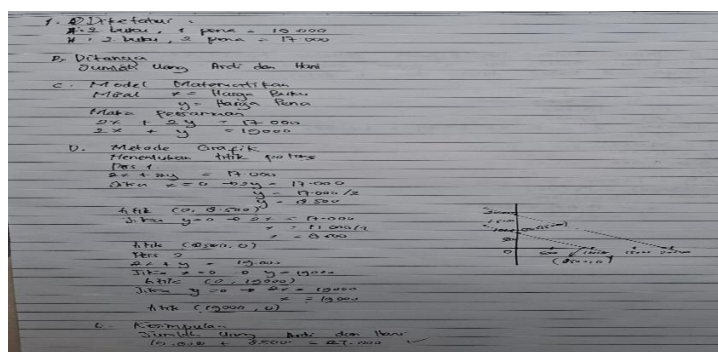 1. a) Diketahui :
A : 2 buku, 1 pena = 19.000
H : 2 buku, 2 pena = 17.000
b. Ditanya
Jumlah uang Ardi dan Hani
c. Model Matematikan
Misal x = Harga Buku
y = Harga Pena
Maka Persamaan
2x + 2y = 17.000
2x + y = 19000
D. Metode Grafik
Menentukan titik potong
Pers 1
2x + 2y = 17.000
Jika x = 0 → 2y = 17.000
y = 17.000/2
y = 8.500
titik (0, 8.500)
Jika y=0 → 2x = 17.000
x = 17.000/2
x = 8.500
titik (8500, 0)
Pers 2
2x + y = 19.000
Jika x = 0 → y = 19000
titik (0, 19000)
Jika y = 0 → 2x = 19000
x = 19000
titik (19000, 0)
0
(8500,0)
E. Kesimpulan
Jumlah Uang Ardi dan Hani
19.000 + 8.500 = 27.000